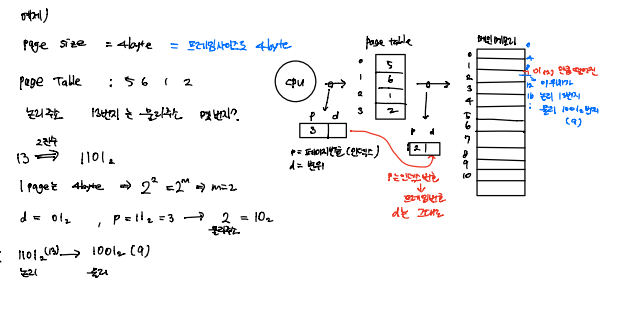 예제)
page size = 4byte = 프레임사이즈도 4byte
page Table : 5 6 1 2
논리주소 13번지는 물리주소 몇번지?
2진수
13 ⟹ 1101₂
1page는 4byte ⇒ 2² = 2ᵐ ⇒ m=2
d = 01₂ , p = 11₂ = 3 → 2 = 10₂
물리주소
1101₂ (13) → 1001₂ (9)
논리 물리
CPU
p d
3
p = 페이지번호 (인덱스)
d = 변위
page table
0 5
1 6
2 1
3 2
p d
2
p는 인덱스번호
↓
프레임번호
d는 그대로
메인메모리
0
1
2
3
4
5
6
7
8
9
10
0
4
8
12
16
만큼 떨어진
이 위치가
논리 13번지
물리 1001₂번지
(9)